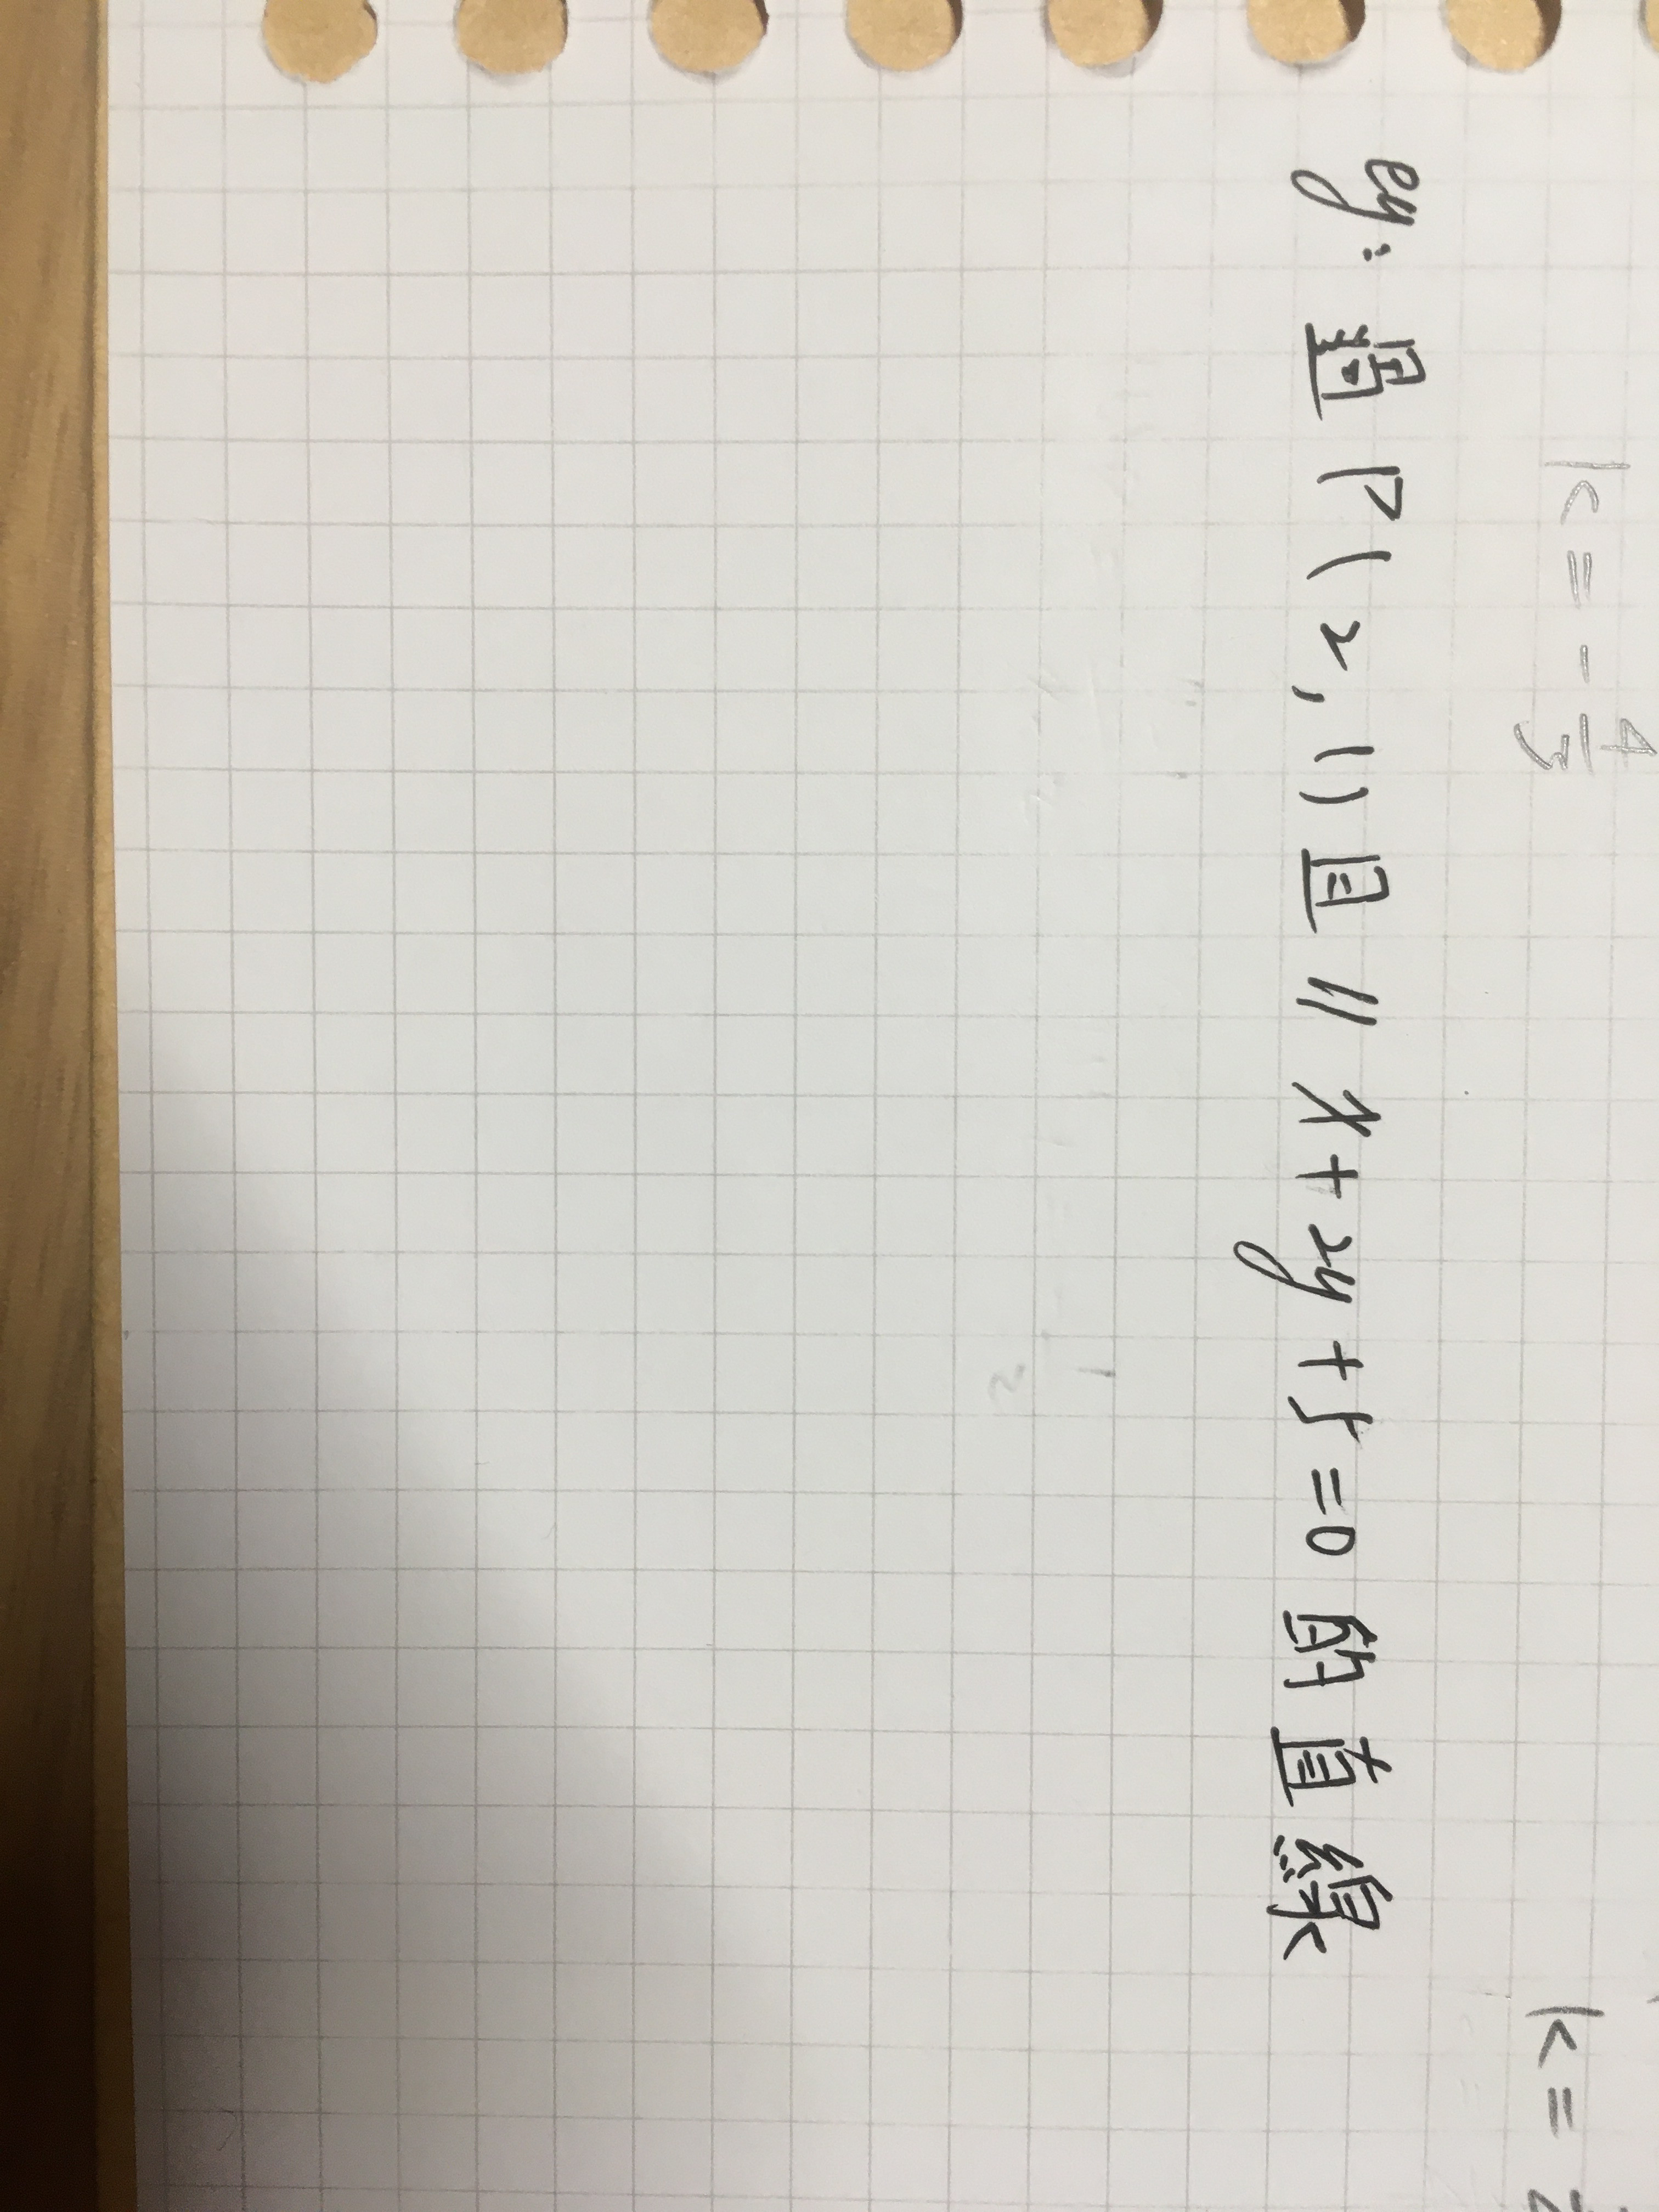 k = - 4/3 k =
eg: 過 P(2,1)且 // x+2y+5=0 的直線